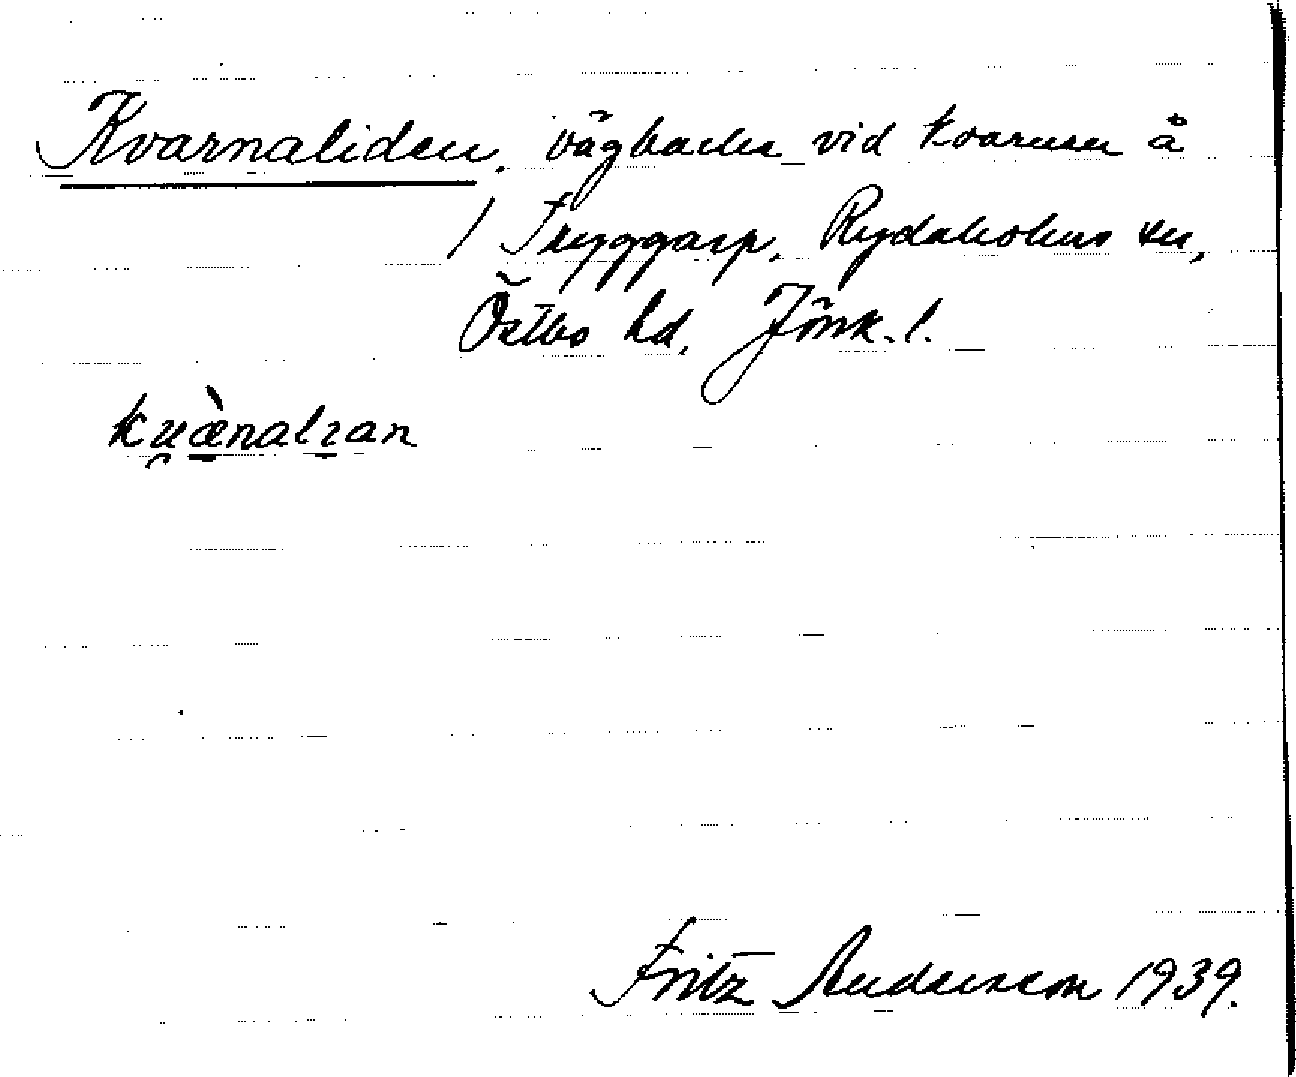 Kvarnaliden, vägbacke vid kvarnen å
/ Tryggarp, Rydaholms sn,
Östbo hd, Jönk. l.
ku̯æ̀nalɩan
Fritz Andersson 1939.